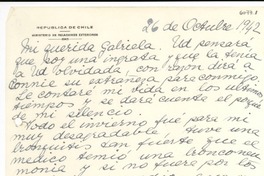 REPUBLICA DE CHILE
MINISTERIO DE RELACIONES EXTERIORES
26 de Octubre 1942
Mi querida Gabriela. Ud pensará
que soy una ingrata y que la tenía
a Ud olvidada, con razón dirá
Connie su extrañeza para conmigo.
Le contaré mi vida en los últimos
tiempos y se dará cuenta el porqué
de mi silencio.
Todo el invierno fué para mi
muy desagradable. tuve una
bronquitis tan fuerte que el
médico temió una bronconeu
monia y si no fuere por los